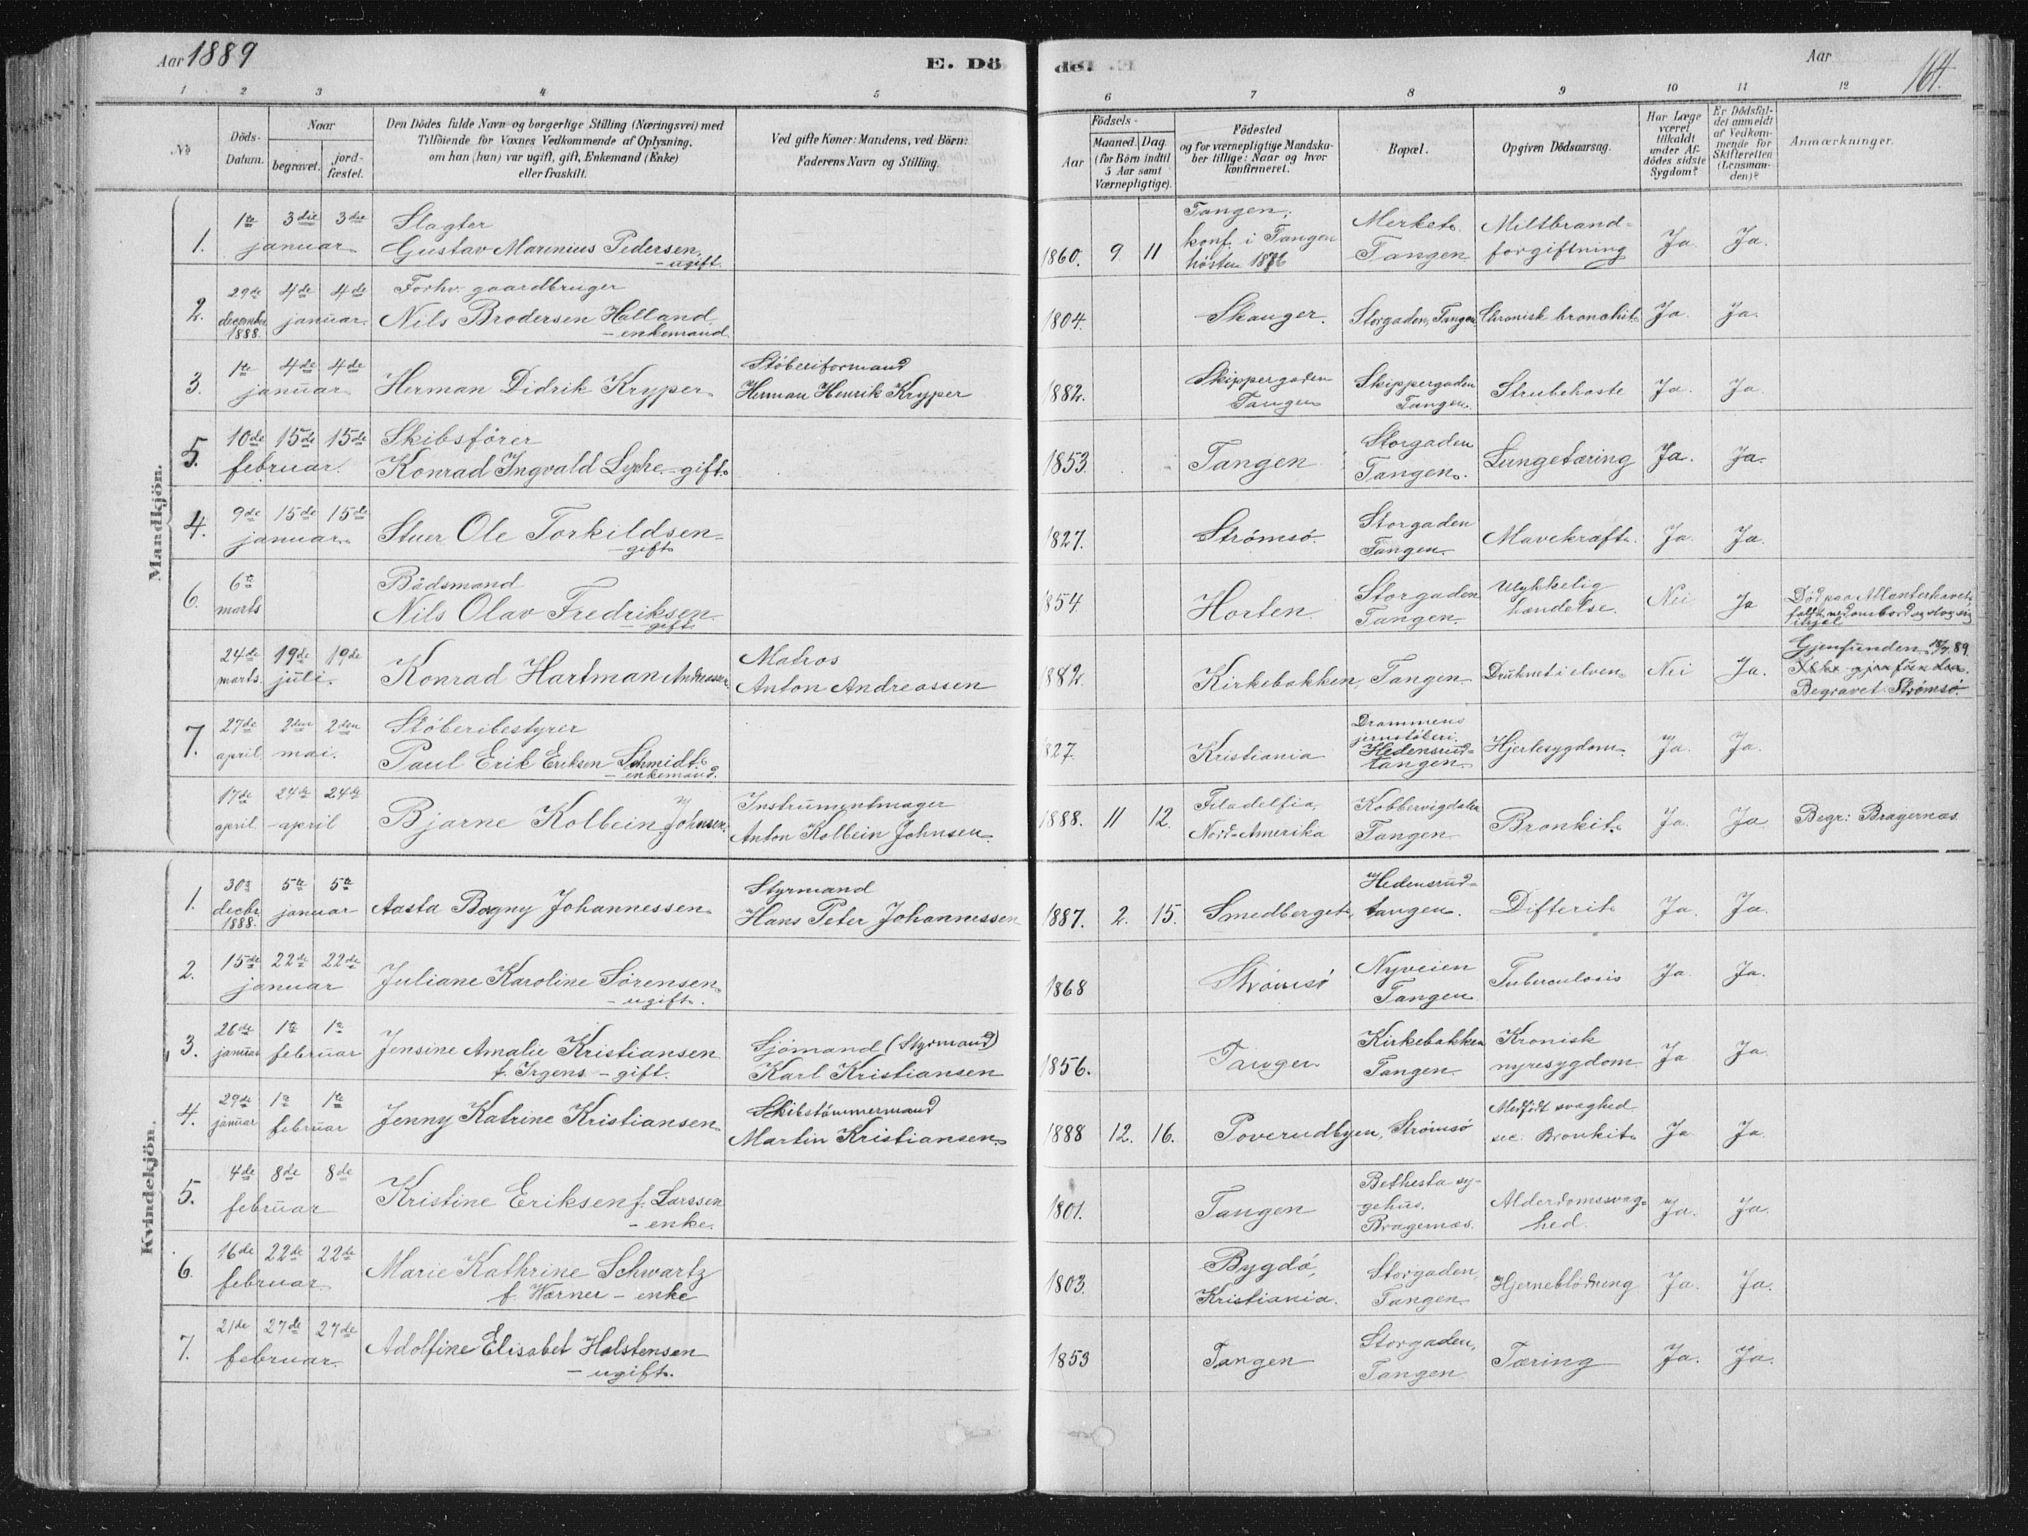 Aar 1889
E. Dö
de.
Aar
164.
1 2 3 4 5 6 7 8 9 10 11 12
No
Döds-
Datum.
Naar
begravet.
jord-
fæstet.
Den Dödes fulde Navn og borgerlige Stilling (Næringsvei) med
Tilföiende for Voxnes Vedkommende af Oplysning.
om han (hun) var ugift, gift, Enkemand (Enke)
eller fraskilt.
Ved gifte Koner: Mandens, ved Börn:
Faderens Navn og Stilling.
Födsels-
Aar
Maaned. Dag.
(for Börn indtil
5 Aar samt
Værnepligtige).
Födested
og for værnepligtige Mandska-
ber tillige: Naar og hvor
konfirmeret.
Bopæl.
Opgiven Dödsaarsag.
Har Læge
været
tilkaldt
under Af-
dödes sidste
Sygdom?
Er Dödsfal-
det anmeldt
af Vedkom-
mende for
Skifteretten
(Lensman-
den)?
Anmærkninger.
Mandkjön.
1. 1te 3die 3die
januar
Slagter
Gustav Marenius Pedersen.
- ugift.
1860. 9 11
Tangen,
konf. i Tangen
høsten 1876
Merket.
Tangen
Miltbrand-
forgiftning
Ja Ja.
2. 29de
december
1888.
4de 4de
januar.
Forhv. gaardbruger
Nils Brodersen Halland
- enkemand
1804. Skauger. Storgaden, Tangen. Chronisk bronchit. Ja. Ja.
3. 1te 4de 4de
januar
Herman Didrik Kryper.
Støberiformand
Herman Henrik Kryper
1882.
Skippergaden
Tangen
Skippergaden
Tangen.
Strubehoste Ja. Ja
5. 10de 15de 15de
februar.
Skibsfører
Konrad Ingvald Lyche - gift.
1853. Tangen
Storgaden
Tangen.
Lungetæring Ja. Ja.
4. 9de 15de 15de
januar.
Stuer Ole Torkildsen
- gift.
1827. Strømsø.
Storgaden
Tangen.
Mavekræft. Ja. Ja.
6. 6te
marts
Bådsmand
Nils Olav Fredriksen
- gift.
1854 Horten
Storgaden
Tangen.
Ulykkelig
hændelse.
Nei Ja
Død paa Atlanterhavet,
faldt ned ombord og slog sig
ihjel
24de
marts.
19de 19de
juli.
Konrad Hartman Andreassen
Matros
Anton Andreassen
1882. Kirkebakken, Tangen. Druknet i elven. Nei Ja.
Gjenfunden 89.
Begravet Strømsö.
7. 27de
april
2den 2den
mai.
Støberibestyrer
Paul Erik Eriksen Schmidt.
- enkemand.
1827. Kristiania
Drammens
jernstøberi.
Hedensrud-
tangen.
Hjertesygdom. Ja. Ja.
17de
april
24de 24de
april
Bjarne Kolbein Johnsen.
Instrumentmager
Anton Kolbein Johnsen.
1888. 11 12.
Filadelfia,
Nord-Amerika
Kobbervigdalen
Tangen
Bronkit. Ja. Ja Begr: Bragernæs.
Kvindekjön.
1. 30te
decbr.
1888.
5te 5te
januar
Aasta Bogny Johannessen.
Styrmand
Hans Peter Johannessen
1887. 2. 15. Smedberget,
Hedensrud-
tangen.
Difterit. Ja. Ja.
2. 15de 22de 22de
januar
Juliane Karoline Sørensen.
- ugift.
1868 Strømsø
Nyveien
Tangen
Tuberculosis Ja. Ja.
3. 26de
januar
1te 1te
februar
Jensine Amalie Kristiansen
f. Irgens - gift.
Sjömand (Styrmand)
Karl Kristiansen
1856. Tangen
Kirkebakken
Tangen.
Kronisk
nyresygdom
Ja Ja.
4. 29de
januar
1te 1te
februar
Jenny Katrine Kristiansen.
Skibstømmermand
Martin Kristiansen.
1888 12. 16. Poverudbyen, Strømsø
Medfødt svaghed
sec: Bronkit.
Ja Ja.
5. 4de 8de 8de
februar
Kristine Eriksen f. Larssen
- enke.
1801. Tangen
Bethesta sy-
gehus.
Bragernæs.
Alderdomssvag-
hed.
Ja. Ja.
6. 16de 22de 22de
februar.
Marie Kathrine Schwartz
f. Wærner - enke
1803.
Bygdö,
Kristiania.
Storgaden,
Tangen.
Hjerneblødning Ja. Ja.
7. 21de 27de 27de
februar.
Adolfine Elisabet Holstensen
- ugift.
1853 Tangen
Storgaden,
Tangen
Tæring Ja. Ja.